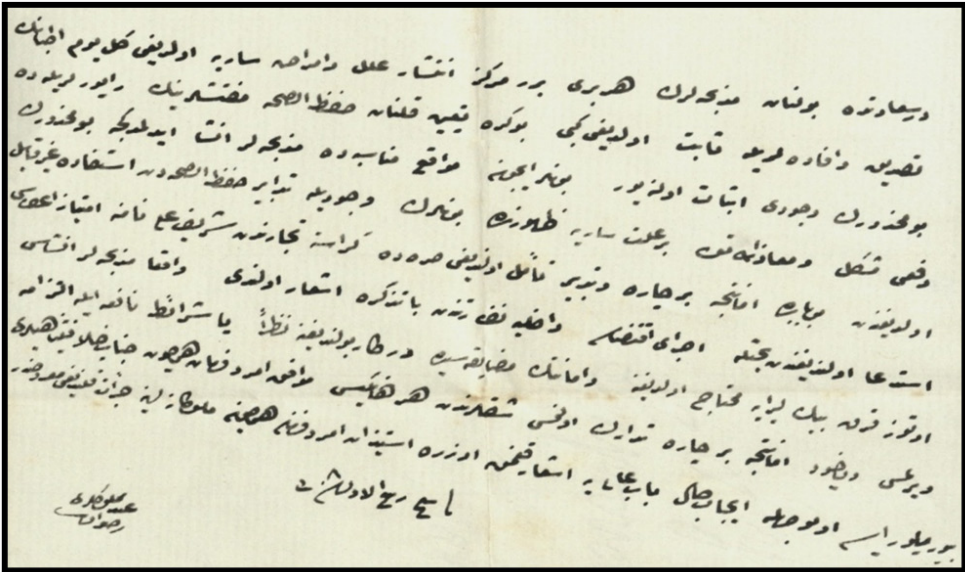 درسعادتده بولنان مذبحه‌لرك هربرى برر مركز انتشار علل وامراض ساريه اولديغى كل يوم اطبانك
تصديق وافاده‌لريله ثابت اولديغى كبى بوكره تعيين قلنان حفظ الصحه مفتشلرينك راپورلريله ده
بو محذورك وجودى اثبات اولنيور بونلر ايچون مواقع مناسبه‌ده مذبحه‌لر انشا ايدلمدكجه بو محذورك
دفعى مشكل ومعاذ الله بر علت ساريه ظهورنده بونلرك وجوديله تدابير حفظ الصحه‌دن استفاده غير قابل
اولديغندن بوبابده امانتجه بر چاره وتدبير تأمل اولنديغى صره‌ده تجارندن شريف على نامنه امتياز اعطاسى
استدعا اولنديغندن بحثله اجراى اقتضاسى داخليه نظارتندن باتذكره اشعار اولندى واقعا مذبحه‌لر انشاسى
اوتوز قرق بيك ليرايه محتاج اولديغنه وامانتك مضايقه‌سى دركار بولنديغنه نظراً يا شرائط نافعه ايله التزامه
ويرلمسى وياخود امانتجه بر چاره تدارك اولنمسى شقلرندن هر هانكيسى موافق امر وفرمان همايون حضرت خلافتپناهى
بيوريلورايسه اولوجهله ايجاب حالى باب عالى‌يه اشعار قلنمق اوزره استيذان امر وفرمان
ربيع الاول سنه
عبد مملوكلرى
رضوان